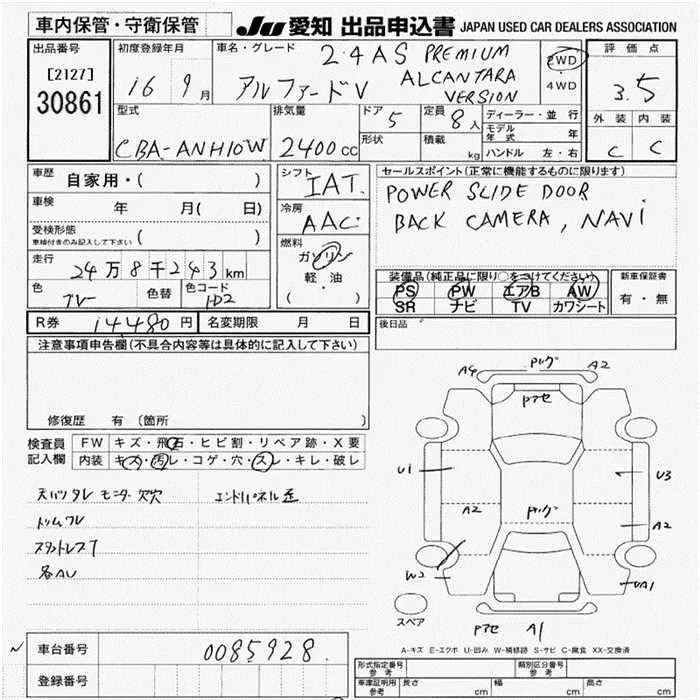 車内保管・守衛保管
JU 愛知 出品申込書 JAPAN USED CAR DEALERS ASSOCIATION
出品番号
[2127]
30861
初度登録年月
16 9月
車名・グレード
アルファードV
2.4AS PREMIUM
ALCANTARA
VERSION
2WD
4WD
評価点
3.5
外装 内装
C C
型式
CBA-ANH10W
排気量
2400cc
ドア
5
形状
定員
8人
積載
kg
ディーラー・並行
モデル年式 年
ハンドル 左・右
車歴
自家用・( )
車検
年 月( 日)
受検形態
車検付きのみ記入して下さい ( )
走行
24万8千243km
色
色替
色コード
1D2
シフト
IAT.
冷房
AAC
燃料
ガソリン
軽・油
( ・ )
セールスポイント(正常に機能するものに限ります)
POWER SLIDE DOOR
BACK CAMERA, NAVI
装備品(純正品に限り○をつけてください)
PS PW エアB AW
SR ナビ TV カワシート
新車保証書
有・無
後日品
R券 14480円 名変期限 月 日
注意事項申告欄(不具合内容等は具体的に記入して下さい)
修復歴 有 (箇所 )
検査員
記入欄
FW キズ・飛石・ヒビ割・リペア跡・X要
内装 キズ・汚レ・コゲ・穴・スレ・キレ・破レ
各AU
A4 A2
U1 U3
A2 A2
W2 UA1
A1
スペア
A-キズ E-エクボ U-凹み W-補修跡 S-サビ C-腐食 XX-交換済
車台番号 0085928
登録番号
形式指定番号
参考
類別区分番号
参考
車庫証明用
参考
長さ cm 幅 cm 高さ cm